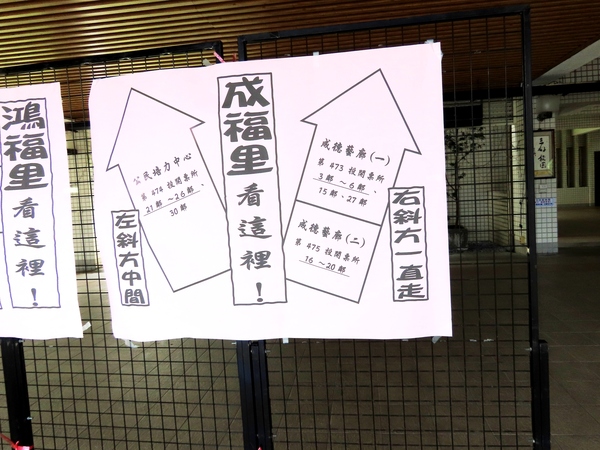 鴻福里看這裡！
成福里看這裡！
公民培力中心
第 474 投開票所
21 鄰～26 鄰、
30 鄰
左斜方中間
成德藝廊(一)
第 473 投開票所
3 鄰～6 鄰、
15 鄰、27 鄰
成德藝廊(二)
第 475 投開票所
16～20 鄰
右斜方一直走